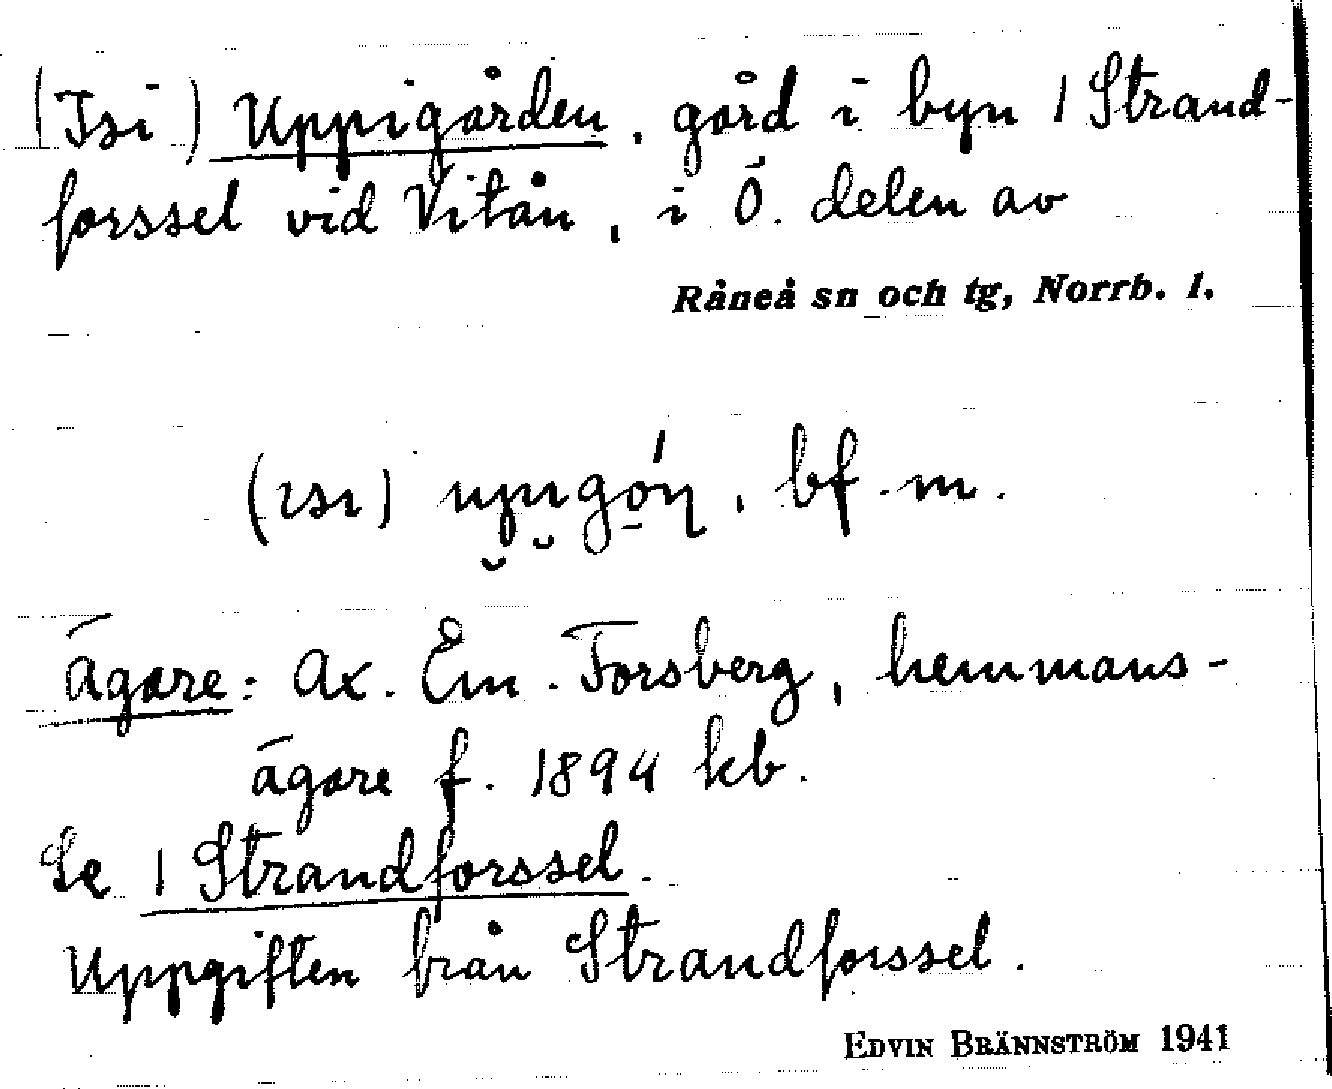 (Isi) Uppigården, gård i byn 1 Strand-
forssel vid Vitån, i Ö. delen av
Råneå sn och tg, Norrb. l.
bf. m.
Ägare: Ax. Em. Forsberg, hemmans-
ägare f. 1894 kb.
Se 1 Strandforssel.
Uppgiften från Strandforssel.
EDVIN BRÄNNSTRÖM 1941